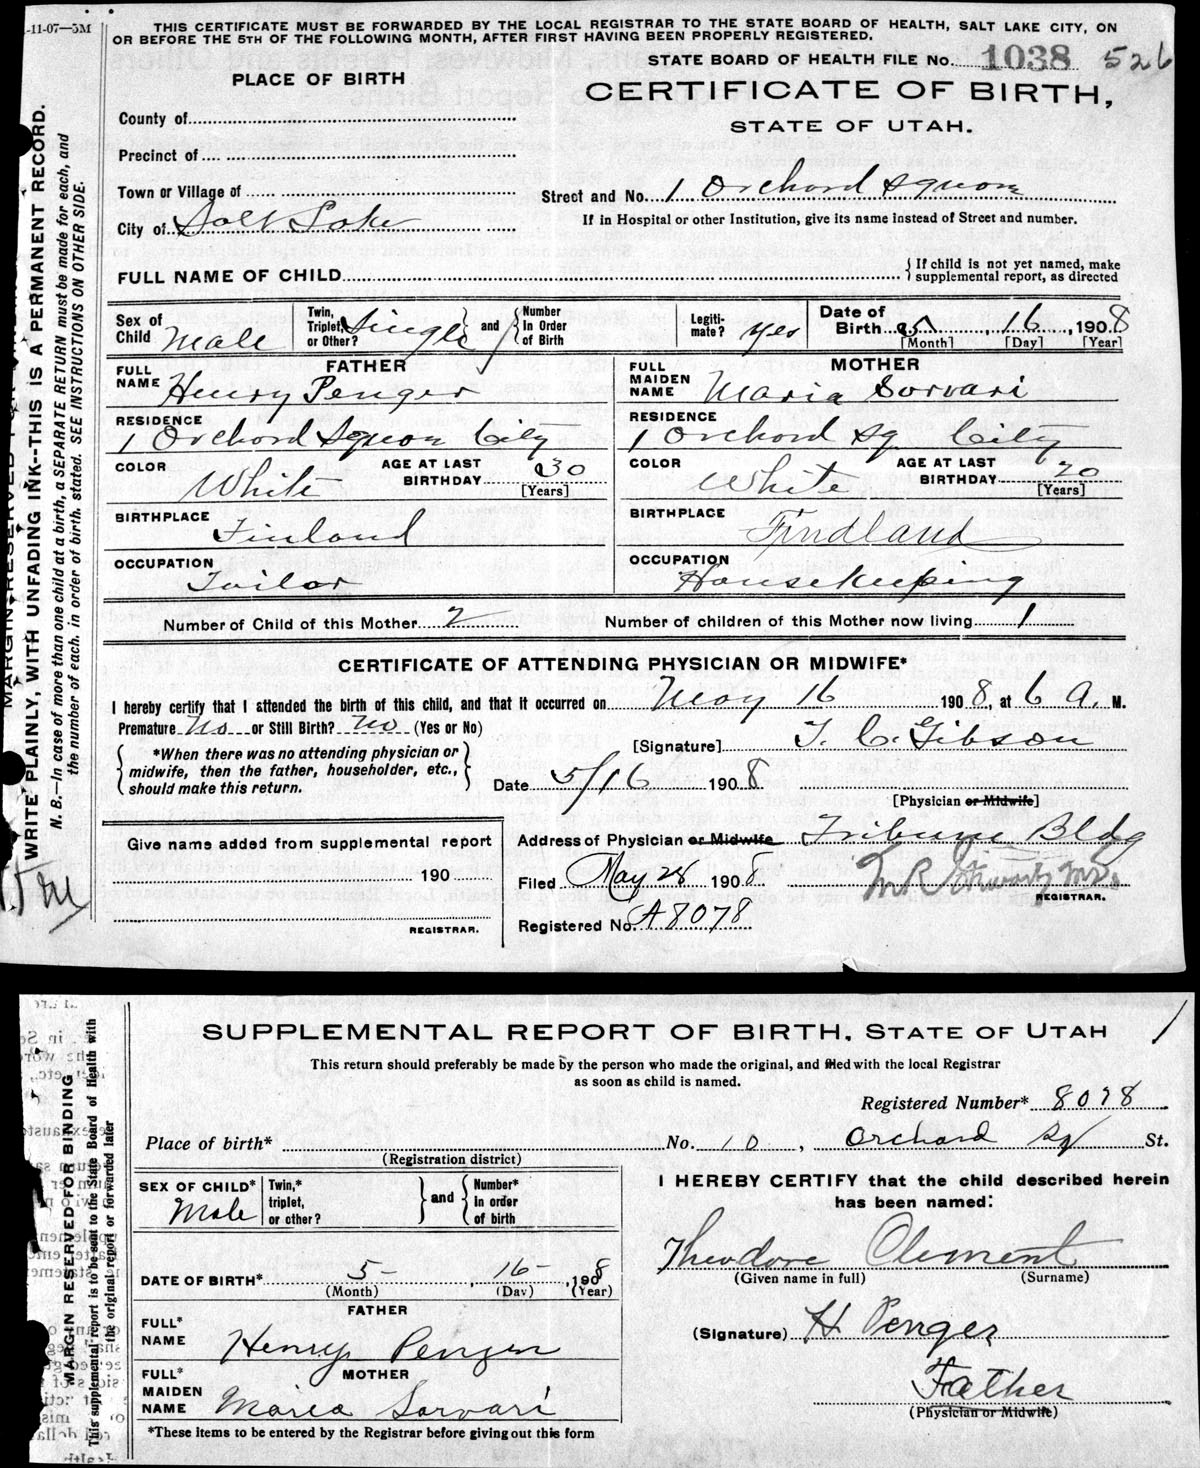 -11-07—5M
THIS CERTIFICATE MUST BE FORWARDED BY THE LOCAL REGISTRAR TO THE STATE BOARD OF HEALTH, SALT LAKE CITY, ON
OR BEFORE THE 5TH OF THE FOLLOWING MONTH, AFTER FIRST HAVING BEEN PROPERLY REGISTERED.
STATE BOARD OF HEALTH FILE No. 1038 526
PLACE OF BIRTH
CERTIFICATE OF BIRTH,
STATE OF UTAH.
County of
Precinct of
Town or Village of
City of Salt Lake
Street and No. 1 Orchard Square
If in Hospital or other Institution, give its name instead of Street and number.
FULL NAME OF CHILD
{If child is not yet named, make
supplemental report, as directed
Sex of Child Male
Twin, Triplet, or Other? Single
and
Number In Order of Birth
Legiti-mate? yes
Date of Birth 5, 16, 1908
[Month] [Day] [Year]
FATHER
FULL NAME Henry Penger
RESIDENCE
1 Orchard Square City
COLOR White
AGE AT LAST BIRTHDAY 30
[Years]
BIRTHPLACE Finland
OCCUPATION Tailor
MOTHER
FULL MAIDEN NAME Maria Sorvari
RESIDENCE
1 Orchard Sq City
COLOR White
AGE AT LAST BIRTHDAY 20
[Years]
BIRTHPLACE Findland
OCCUPATION Housekeeping
Number of Child of this Mother 2
Number of children of this Mother now living 1
CERTIFICATE OF ATTENDING PHYSICIAN OR MIDWIFE*
I hereby certify that I attended the birth of this child, and that it occurred on May 16 1908, at 6 A. M.
Premature No or Still Birth? No (Yes or No)
*When there was no attending physician or
midwife, then the father, householder, etc.,
should make this return.
[Signature] T. C. Gibson
Date 5/16 1908
[Physician or Midwife]
Give name added from supplemental report
190
REGISTRAR.
Address of Physician or Midwife Tribune Bldg
Filed May 28 1908
M R Stewart MD.
REGISTRAR.
Registered No. A8078
WRITE PLAINLY, WITH UNFADING INK--THIS IS A PERMANENT RECORD.
N. B.—In case of more than one child at a birth, a SEPARATE RETURN must be made for each, and
the number of each, in order of birth, stated. SEE INSTRUCTIONS ON OTHER SIDE.
SUPPLEMENTAL REPORT OF BIRTH, STATE OF UTAH
1
This return should preferably be made by the person who made the original, and filed with the local Registrar
as soon as child is named.
Registered Number* 8078
Place of birth*
(Registration district)
No. 10, Orchard Sq St.
SEX OF CHILD* Male
Twin,* triplet, or other?
and
Number* in order of birth
I HEREBY CERTIFY that the child described herein
has been named:
Theodore Clement
(Given name in full) (Surname)
DATE OF BIRTH* 5-, 16-, 1908
(Month) (Day) (Year)
FATHER
FULL* NAME Henry Penger
MOTHER
FULL* MAIDEN NAME Maria Sorvari
(Signature) H Penger
Father
(Physician or Midwife)
*These items to be entered by the Registrar before giving out this form
MARGIN RESERVED FOR BINDING
This supplemental report is to be sent to the State Board of Health with
the original report or forwarded later